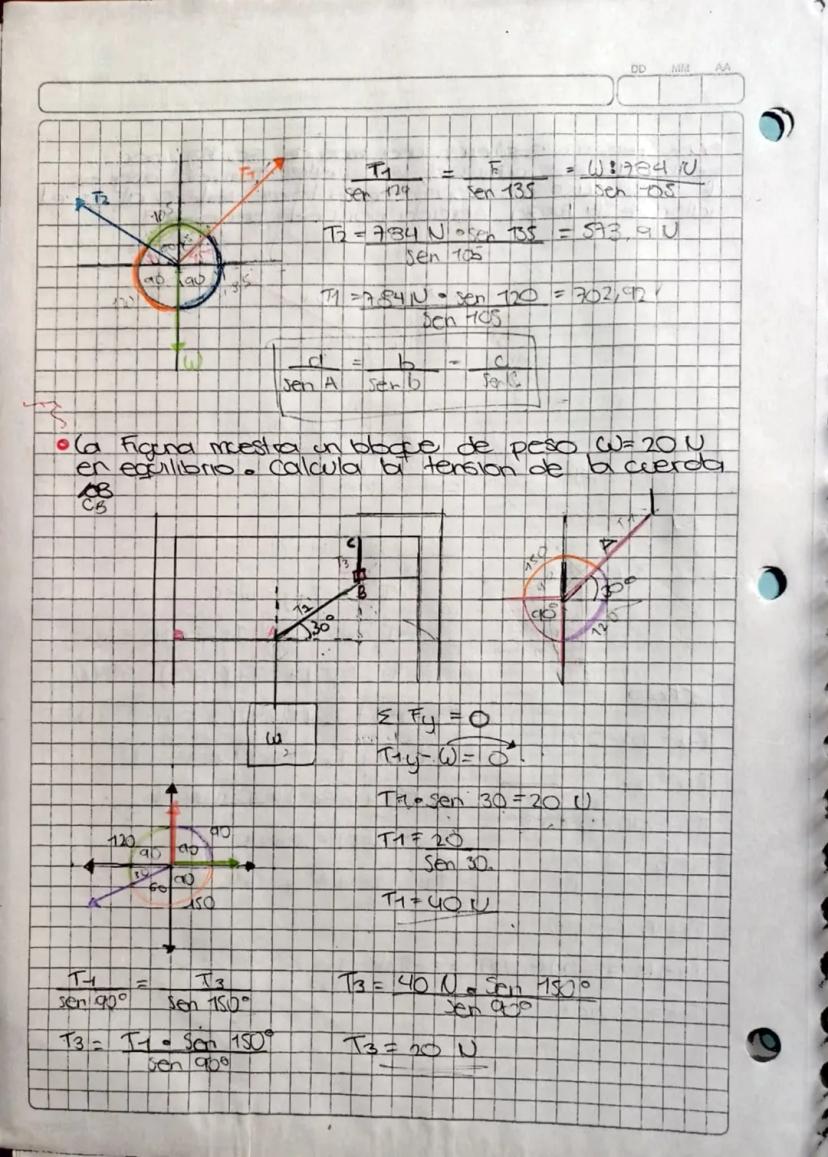 DD MM AA
T2
T1
90 90
W
T1/sen 120 = F/sen 135 = W:784 N/sen 105
T2 = 784 N • sen 135/sen 105 = 573,9 N
T1 = 784 N • sen 120/sen 105 = 702,92
a/sen A = b/sen b = c/sen C
• La Figura muestra un bloque de peso W=20 N
en equilibrio. Calcula la tension de la cuerda
AB
CB
C
T3
B
T2
30°
W
150
T1
A
30°
90°
120
Σ Fy = 0
T1y - W = 0
T1 • sen 30 = 20 N
T1 = 20/sen 30.
T1 = 40 N
120 90
90 90
30 60 90
150
T1/sen 90° = T3/sen 150°
T3 = 40 N • sen 150°/sen 90°
T3 = T1 • sen 150°/sen 90°
T3 = 20 N